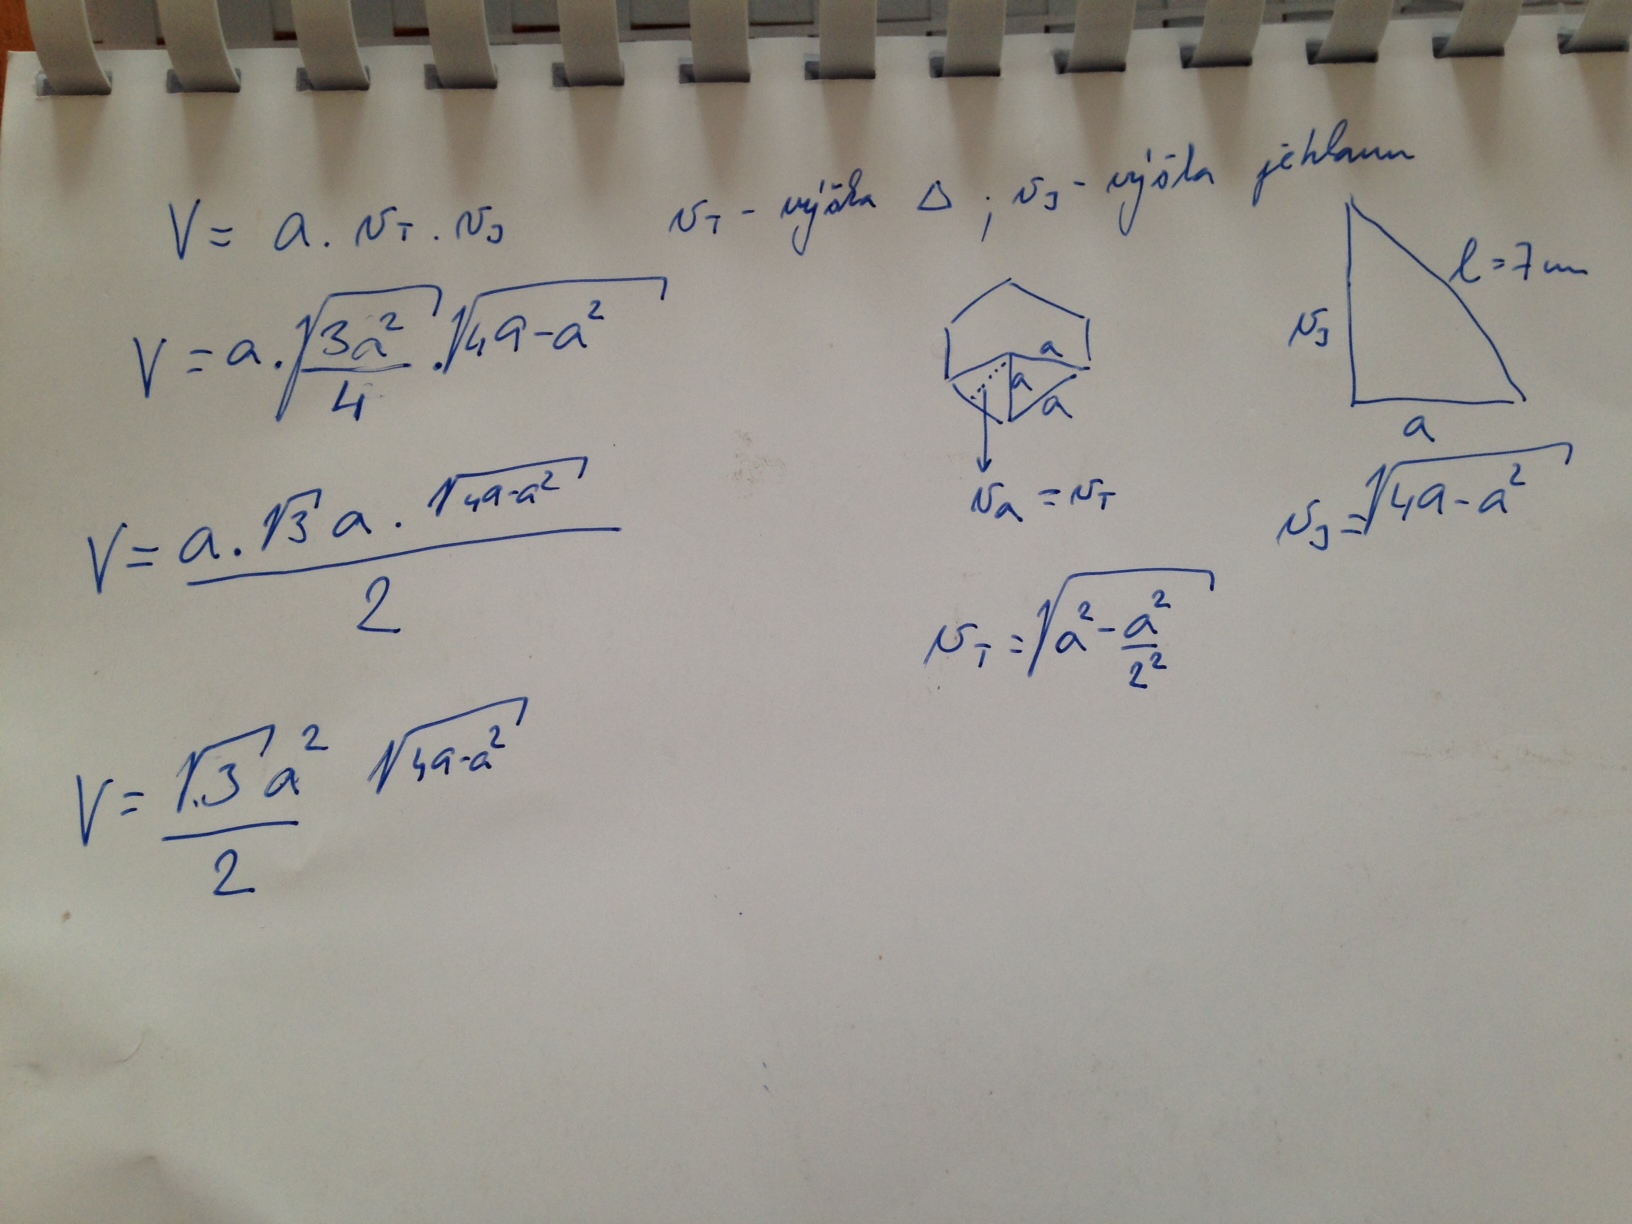 V = a . v_T . v_J    v_T - výška △ ; v_J - výška jehlanu
V = a . √(3a²/4) . √(49-a²)
V = (a . √3 a . √(49-a²))/2
V = (√3 a²)/2 √(49-a²)
a
a
a
v_a = v_T
v_T = √(a² - a²/2²)
l = 7 cm
v_J
a
v_J = √(49-a²)